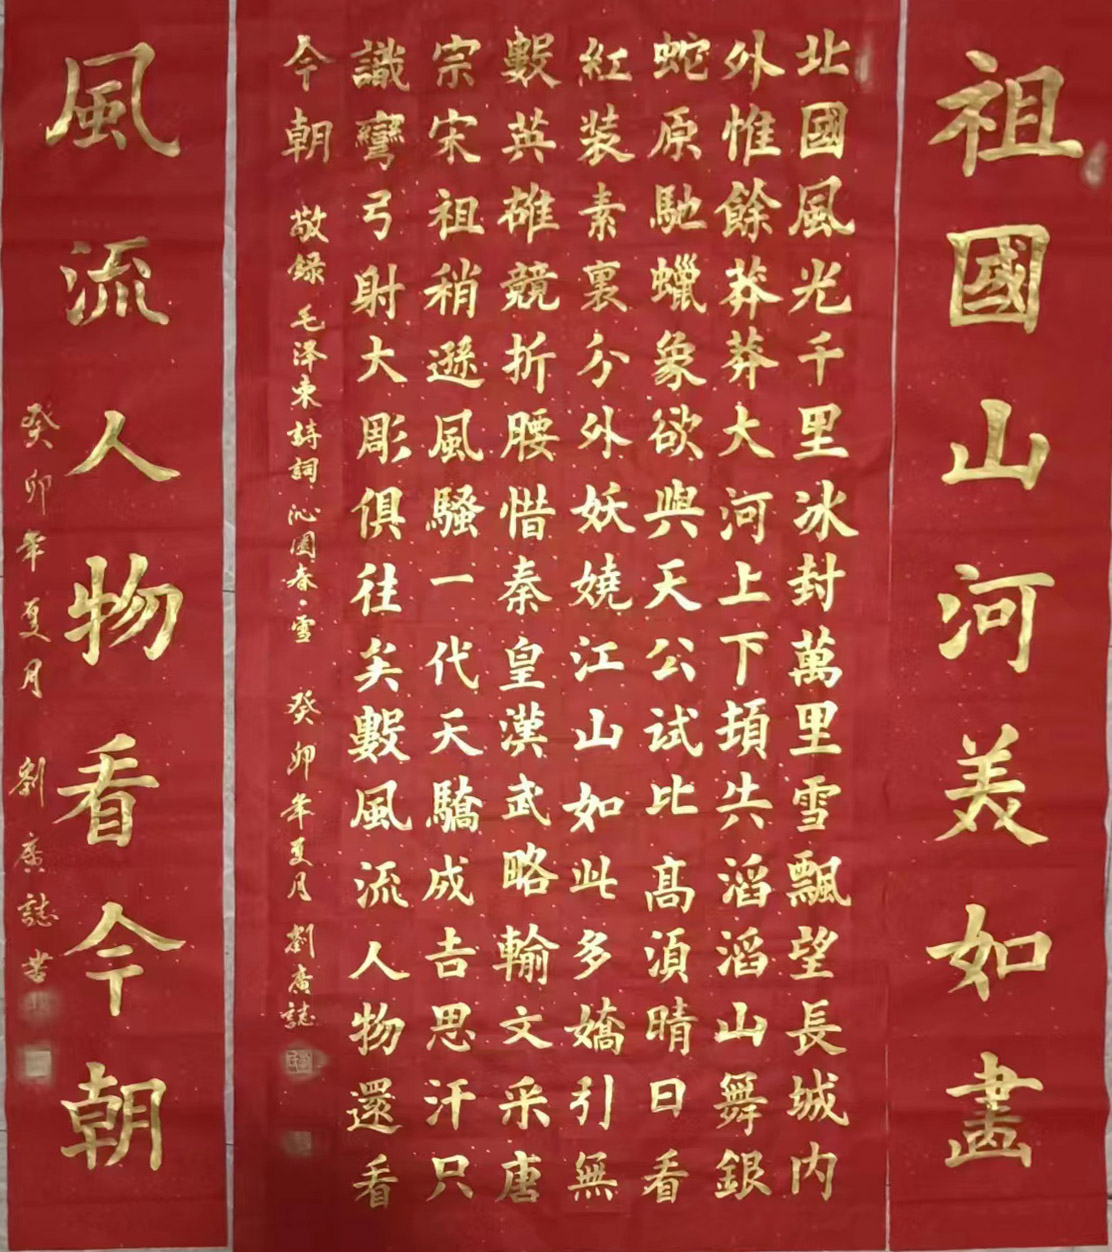 祖國山河美如畫
北國風光千里冰封萬里雪飄望長城内
外惟餘莽莽大河上下頓失滔滔山舞銀
蛇原馳蠟象欲與天公試比高須晴日看
紅装素裹分外妖嬈江山如此多嬌引無
數英雄競折腰惜秦皇漢武略輸文采唐
宗宋祖稍遜風騷一代天驕成吉思汗只
識彎弓射大彫俱往矣數風流人物還看
今朝 敬録毛泽東詩詞沁園春·雪 癸卯年夏月劉廣誌
風流人物看今朝
癸卯年夏月 劉廣誌書